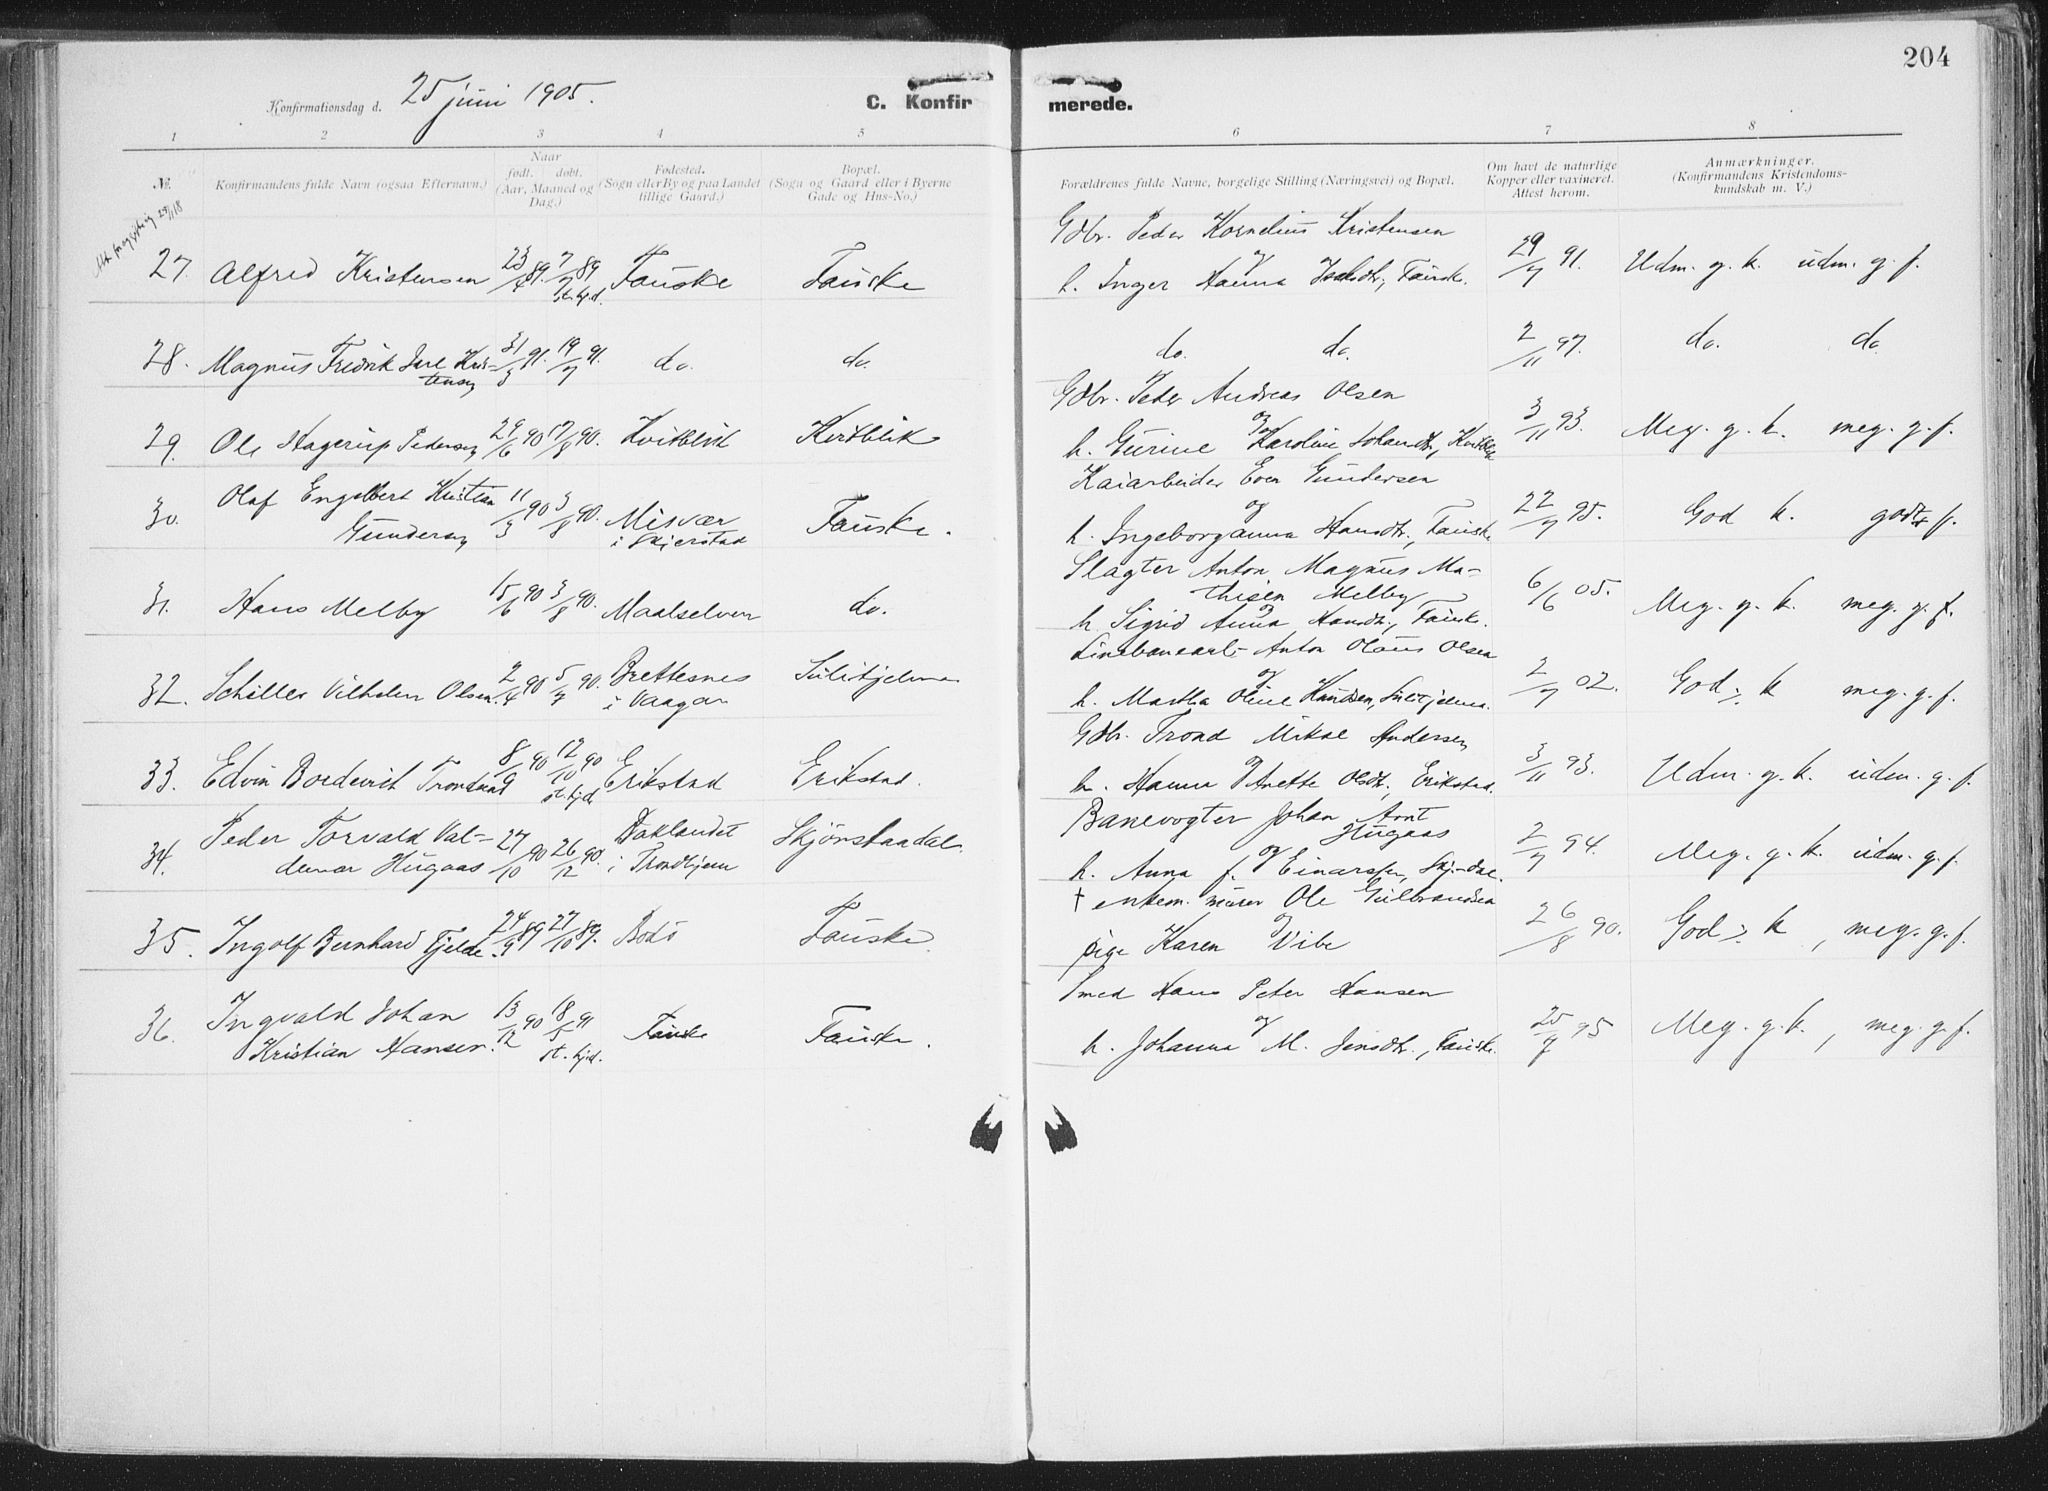 204
Konfirmationsdag d. 25 juni 1905.
C. Konfir merede.
1 2 3 4 5 6 7 8
No.
Konfirmandens fulde Navn (ogsaa Efternavn.)
Naar
født. døbt.
(Aar, Maaned og
Dag.)
Fødested.
(Sogn eller By og paa Landet
tillige Gaard.)
Bopæl.
(Sogn og Gaard eller i Byerne
Gade og Hus-No.)
Forældrenes fulde Navne, borgelige Stilling (Næringsvei) og Bopæl.
Om havt de naturlige
Kopper eller vaxineret.
Attest herom.
Anmærkninger.
(Konfirmandens Kristendoms-
kundskab m. V.)
Gdbr. Peder Kornelius Kristensen
og
27. Alfred Kristensen 23/4 89. 7/7 89 Fauske Fauske
st. hjd.
h. Inger Hanna Isaksdtr., Fauske. 29/7 91. Udm. g. k. udm. g. f.
28. Magnus Fredrik Jarl Kris-
tensen 31/3 91. 19/7 91. do. do. do. do. 2/11 97. do. do
Gdbr. Peder Andreas Olsen
og
29. Ole Hagerup Pedersen 29/6 90 17/8 90. Kvitblik Kvitblik
h. Gurine Karoline Johansdtr., Kvitblik 3/11 93. Meg. g. k. meg. g. f.
Kaiarbeider Even Gundersen
og
30. Olaf Engelbert Kristian
Gundersen 11/3 90 3/8 90. Misvær
i Skjerstad Fauske.
h. Ingeborganna Hansdtr., Fauske 22/7 95. God k. godt f.
Slagter Anton Magnus Ma-
thisen Melby
og
31. Hans Melby 15/6 90 3/8 90. Maalselven do.
h. Sigrid Anna Hansdtr., Fauske. 6/6 05. Meg. g. k. meg. g. f.
Linebanearb. Anton Olaus Olsen
og
32. Schiller Vilhelm Olsen. 2/4 90 5/7 90. Brettesnes
i Vaagan Sulitjelma
h. Martha Oline Knudsen, Sulitjelma. 2/7 02. God k meg. g. f.
Gdbr. Trond Mikal Andersen
og
33. Edvin Bordevik Trondsen 8/9 90 12/10 90 Erikstad Erikstad.
st. hjd.
h. Hanna Anette Olsdtr., Erikstad. 3/11 93. Udm. g. k. udm. g. f.
Banevogter Johan Arnt
Hugaas
og
34. Peder Torvald Val-
demar Hugaas 27/10 90 26/12 90. Baklandet
i Trondhjem Skjønstaadal.
h. Anna f. Einarsen, Skj.-dal. 2/7 94. Meg. g. k. udm. g. f.
† enkem. murer Ole Gulbrandsen
og
35. Ingolf Bernhard Fjelde. 24/9 89 27/10 89. Bodø Fauske.
pige Karen Vibe 26/8 90. God k, meg. g. f.
Smed Hans Peter Hansen
og
36. Ingvald Johan
Kristian Hansen. 13/12 90 18/5 91 Fauske Fauske.
st. hjd.
h. Johanna M. Jensdtr., Fauske. 25/7 95 Meg. g. k., meg. g. f.